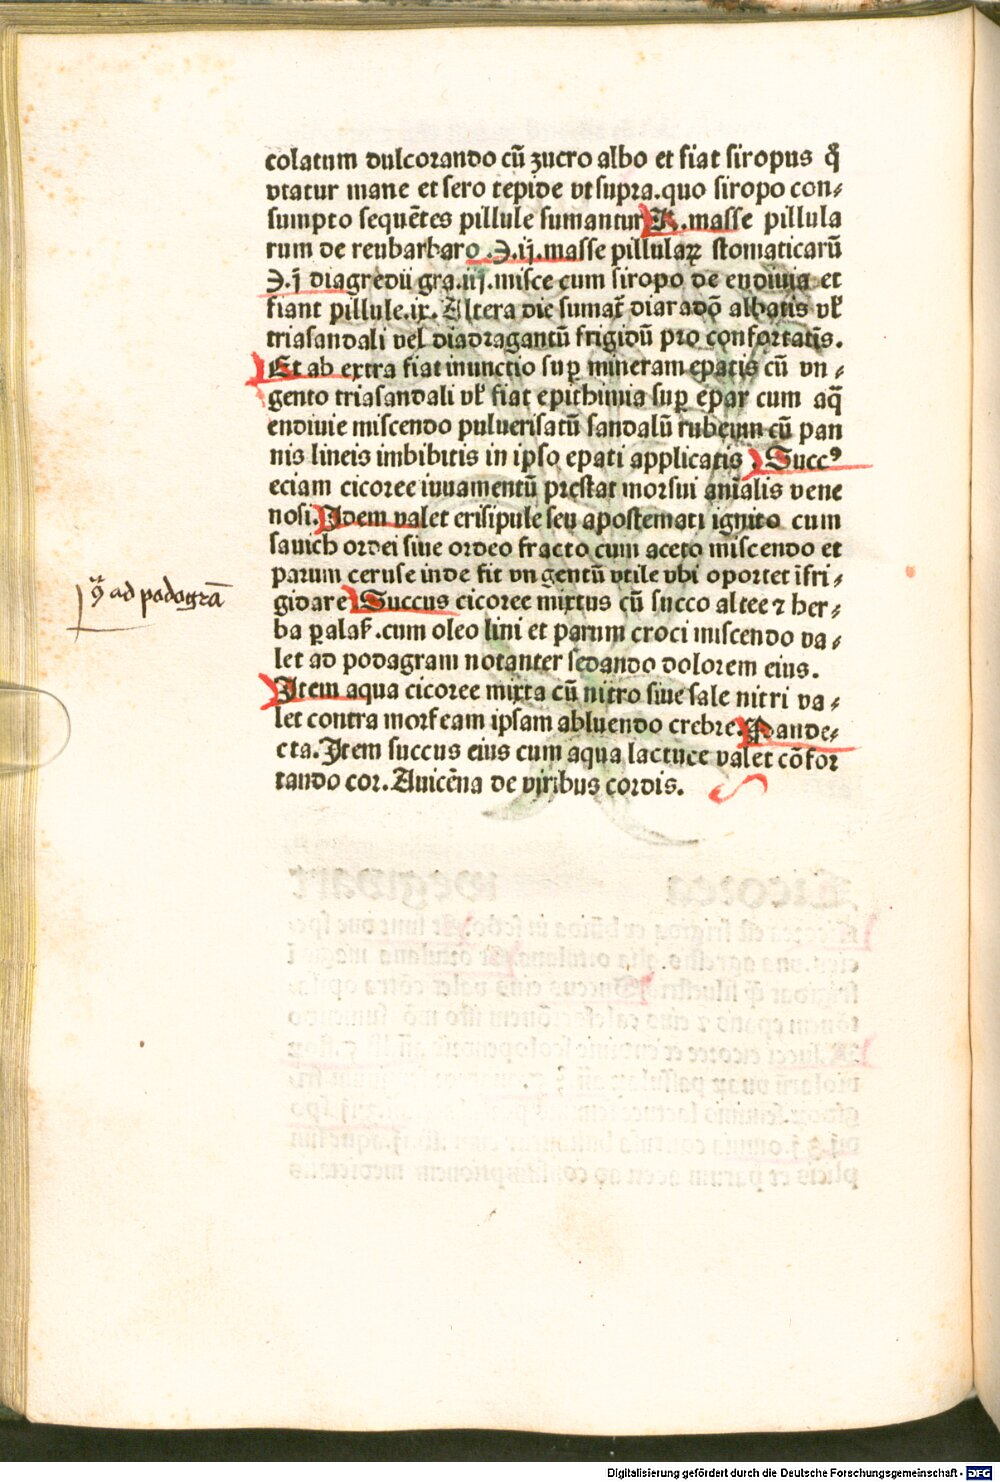 colatum dulcorando cū zucro albo et fiat siropus q̊
vtatur mane et sero tepide vt supra.quo siropo con⸗
sumpto sequētes pillule sumantur ℞.masse pillula
rum de reubarbaro ℈.ij.masse pillulaꝝ stomaticarū
℈.j diagredii gra.iij.misce cum siropo de endiuia et
fiant pillule.ix. Altera die sumat᷑ diaradō abbatis vł
triasandali vel diadragantū frigidū pro confortatiōe.
Et ab extra fiat inunctio suꝑ mineram epatis cū vn⸗
gento triasandali vł fiat epithimia suꝑ epar cum aq̄
endiuie miscendo puluerisatū sandalū rubeum cū pan
nis lineis imbibitis in ipso epati applicatis. Succꝰ
eciam cicoree iuuamentū prestat morsui aīalis vene
nosi. Idem valet erisipule seu apostemati ignito cum
sauich ordei siue ordeo fracto cum aceto miscendo et
parum ceruse inde fit vngentū vtile vbi oportet ifri⸗
gidare Succus cicoree mixtus cū succo altee ⁊ her⸗
ba ꝑalaꝭ.cum oleo lini et parum croci miscendo va⸗
let ad podagram notanter sedando dolorem eius.
Item aqua cicoree mixta cū nitro siue sale nitri va⸗
let contra morfeam ipsam abluendo crebre. Pande⸗
cta. Item succus eius cum aqua lactuce valet cōfor
tando cor. Auicēna de viribus cordis.
ad podagrā
Digitalisierung gefördert durch die Deutsche Forschungsgemeinschaft - DFG